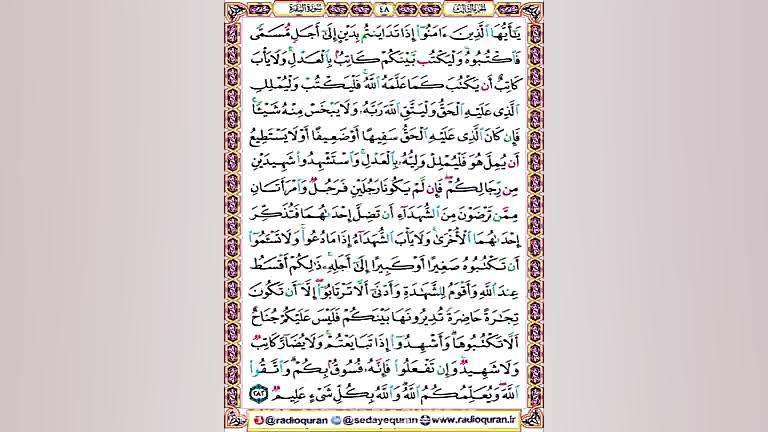 الجزء الثالث ٤٨ سورة البقرة
يَـٰٓأَيُّهَا ٱلَّذِينَ ءَامَنُوٓا۟ إِذَا تَدَايَنتُم بِدَيْنٍ إِلَىٰٓ أَجَلٍ مُّسَمًّى
فَٱكْتُبُوهُ ۚ وَلْيَكْتُب بَّيْنَكُمْ كَاتِبٌۢ بِٱلْعَدْلِ ۚ وَلَا يَأْبَ
كَاتِبٌ أَن يَكْتُبَ كَمَا عَلَّمَهُ ٱللَّهُ ۚ فَلْيَكْتُبْ وَلْيُمْلِلِ
ٱلَّذِى عَلَيْهِ ٱلْحَقُّ وَلْيَتَّقِ ٱللَّهَ رَبَّهُۥ وَلَا يَبْخَسْ مِنْهُ شَيْـًٔا ۚ
فَإِن كَانَ ٱلَّذِى عَلَيْهِ ٱلْحَقُّ سَفِيهًا أَوْ ضَعِيفًا أَوْ لَا يَسْتَطِيعُ
أَن يُمِلَّ هُوَ فَلْيُمْلِلْ وَلِيُّهُۥ بِٱلْعَدْلِ ۚ وَٱسْتَشْهِدُوا۟ شَهِيدَيْنِ
مِن رِّجَالِكُمْ ۖ فَإِن لَّمْ يَكُونَا رَجُلَيْنِ فَرَجُلٌ وَٱمْرَأَتَانِ
مِمَّن تَرْضَوْنَ مِنَ ٱلشُّهَدَآءِ أَن تَضِلَّ إِحْدَىٰهُمَا فَتُذَكِّرَ
إِحْدَىٰهُمَا ٱلْأُخْرَىٰ ۚ وَلَا يَأْبَ ٱلشُّهَدَآءُ إِذَا مَا دُعُوا۟ ۚ وَلَا تَسْـَٔمُوٓا۟
أَن تَكْتُبُوهُ صَغِيرًا أَوْ كَبِيرًا إِلَىٰٓ أَجَلِهِۦ ۚ ذَٰلِكُمْ أَقْسَطُ
عِندَ ٱللَّهِ وَأَقْوَمُ لِلشَّهَـٰدَةِ وَأَدْنَىٰٓ أَلَّا تَرْتَابُوٓا۟ ۖ إِلَّآ أَن تَكُونَ
تِجَـٰرَةً حَاضِرَةً تُدِيرُونَهَا بَيْنَكُمْ فَلَيْسَ عَلَيْكُمْ جُنَاحٌ
أَلَّا تَكْتُبُوهَا ۗ وَأَشْهِدُوٓا۟ إِذَا تَبَايَعْتُمْ ۚ وَلَا يُضَآرَّ كَاتِبٌ
وَلَا شَهِيدٌ ۚ وَإِن تَفْعَلُوا۟ فَإِنَّهُۥ فُسُوقٌۢ بِكُمْ ۗ وَٱتَّقُوا۟
ٱللَّهَ ۖ وَيُعَلِّمُكُمُ ٱللَّهُ ۗ وَٱللَّهُ بِكُلِّ شَىْءٍ عَلِيمٌ ٢٨٢
@radioquran @sedayequran www.radioquran.ir